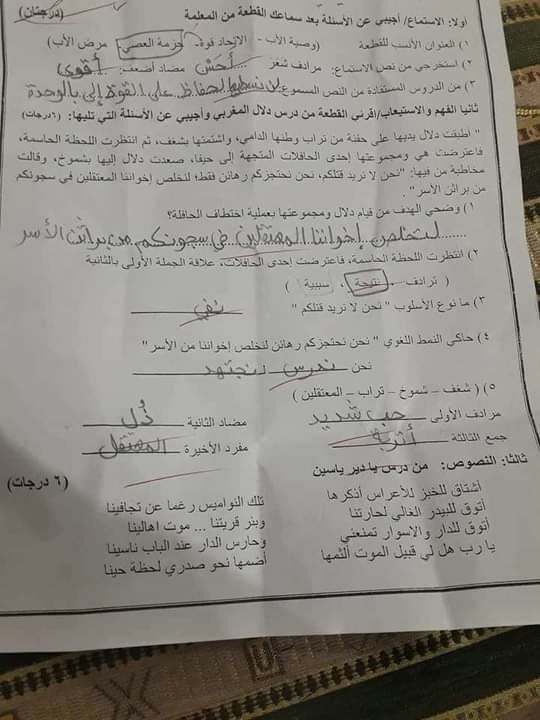 اولا: الاستماع/ أجيبي عن الأسئلة بعد سماعك القطعة من المعلمة (درجتان)
١) العنوان الأنسب للقطعة (وصية الأب - الاتحاد قوة - حزمة العصي - مرض الأب)
٢) استخرجي من نص الاستماع: مرادف شعر أحسّ مضاد أضعف: أقوى
٣) من الدروس المستفادة من النص المسموع لا نستطيع الحفاظ على القوة إلى بالوحدة
ثانيا الفهم والاستيعاب/إقرئي القطعة من درس دلال المغربي وأجيبي عن الأسئلة التي تليها: (٦درجات)
" اطبقت دلال يديها على حفنة من تراب وطنها الدامي، واشتمتها بشغف، ثم انتظرت اللحظة الحاسمة،
فاعترضت هي ومجموعتها إحدى الحافلات المتجهة إلى حيفا، صعدت دلال إليها بشموخ، وقالت
مخاطبة من فيها: "نحن لا نريد قتلكم، نحن نحتجزكم رهائن فقط؛ لنخلص إخواننا المعتقلين في سجونكم
من براثن الأسر"
١) وضحي الهدف من قيام دلال ومجموعتها بعملية اختطاف الحافلة؟
لتخلص إخواننا المعتقلين في سجونكم من براثن الأسر
٢) انتظرت اللحظة الحاسمة، فاعترضت إحدى الحافلات، علاقة الجملة الأولى بالثانية
( ترادف - نتيجة - سببية )
٣) ما نوع الأسلوب " نحن لا نريد قتلكم " نفي
٤) حاكي النمط اللغوي " نحن نحتجزكم رهائن لنخلص إخواننا من الأسر"
نحن ندرس لنجتهد
٥) ( شغف – شموخ – تراب – المعتقلين )
مرادف الأولى حب شديد مضاد الثانية ذُل
جمع الثالثة أتربة مفرد الأخيرة المعتقل
ثالثا: النصوص: من درس يا دير ياسين (٦ درجات)
أشتاق للخبز للأعراس أذكرها تلك النواميس رغما عن تجافينا
أتوق للبيدر الغالي لحارتنا وبئر قريتنا ... موت اهالينا
أتوق للدار والاسوار تمنعني وحارس الدار عند الباب ناسينا
يا رب هل لي قبيل الموت ألثمها أضمها نحو صدري لحظة حينا